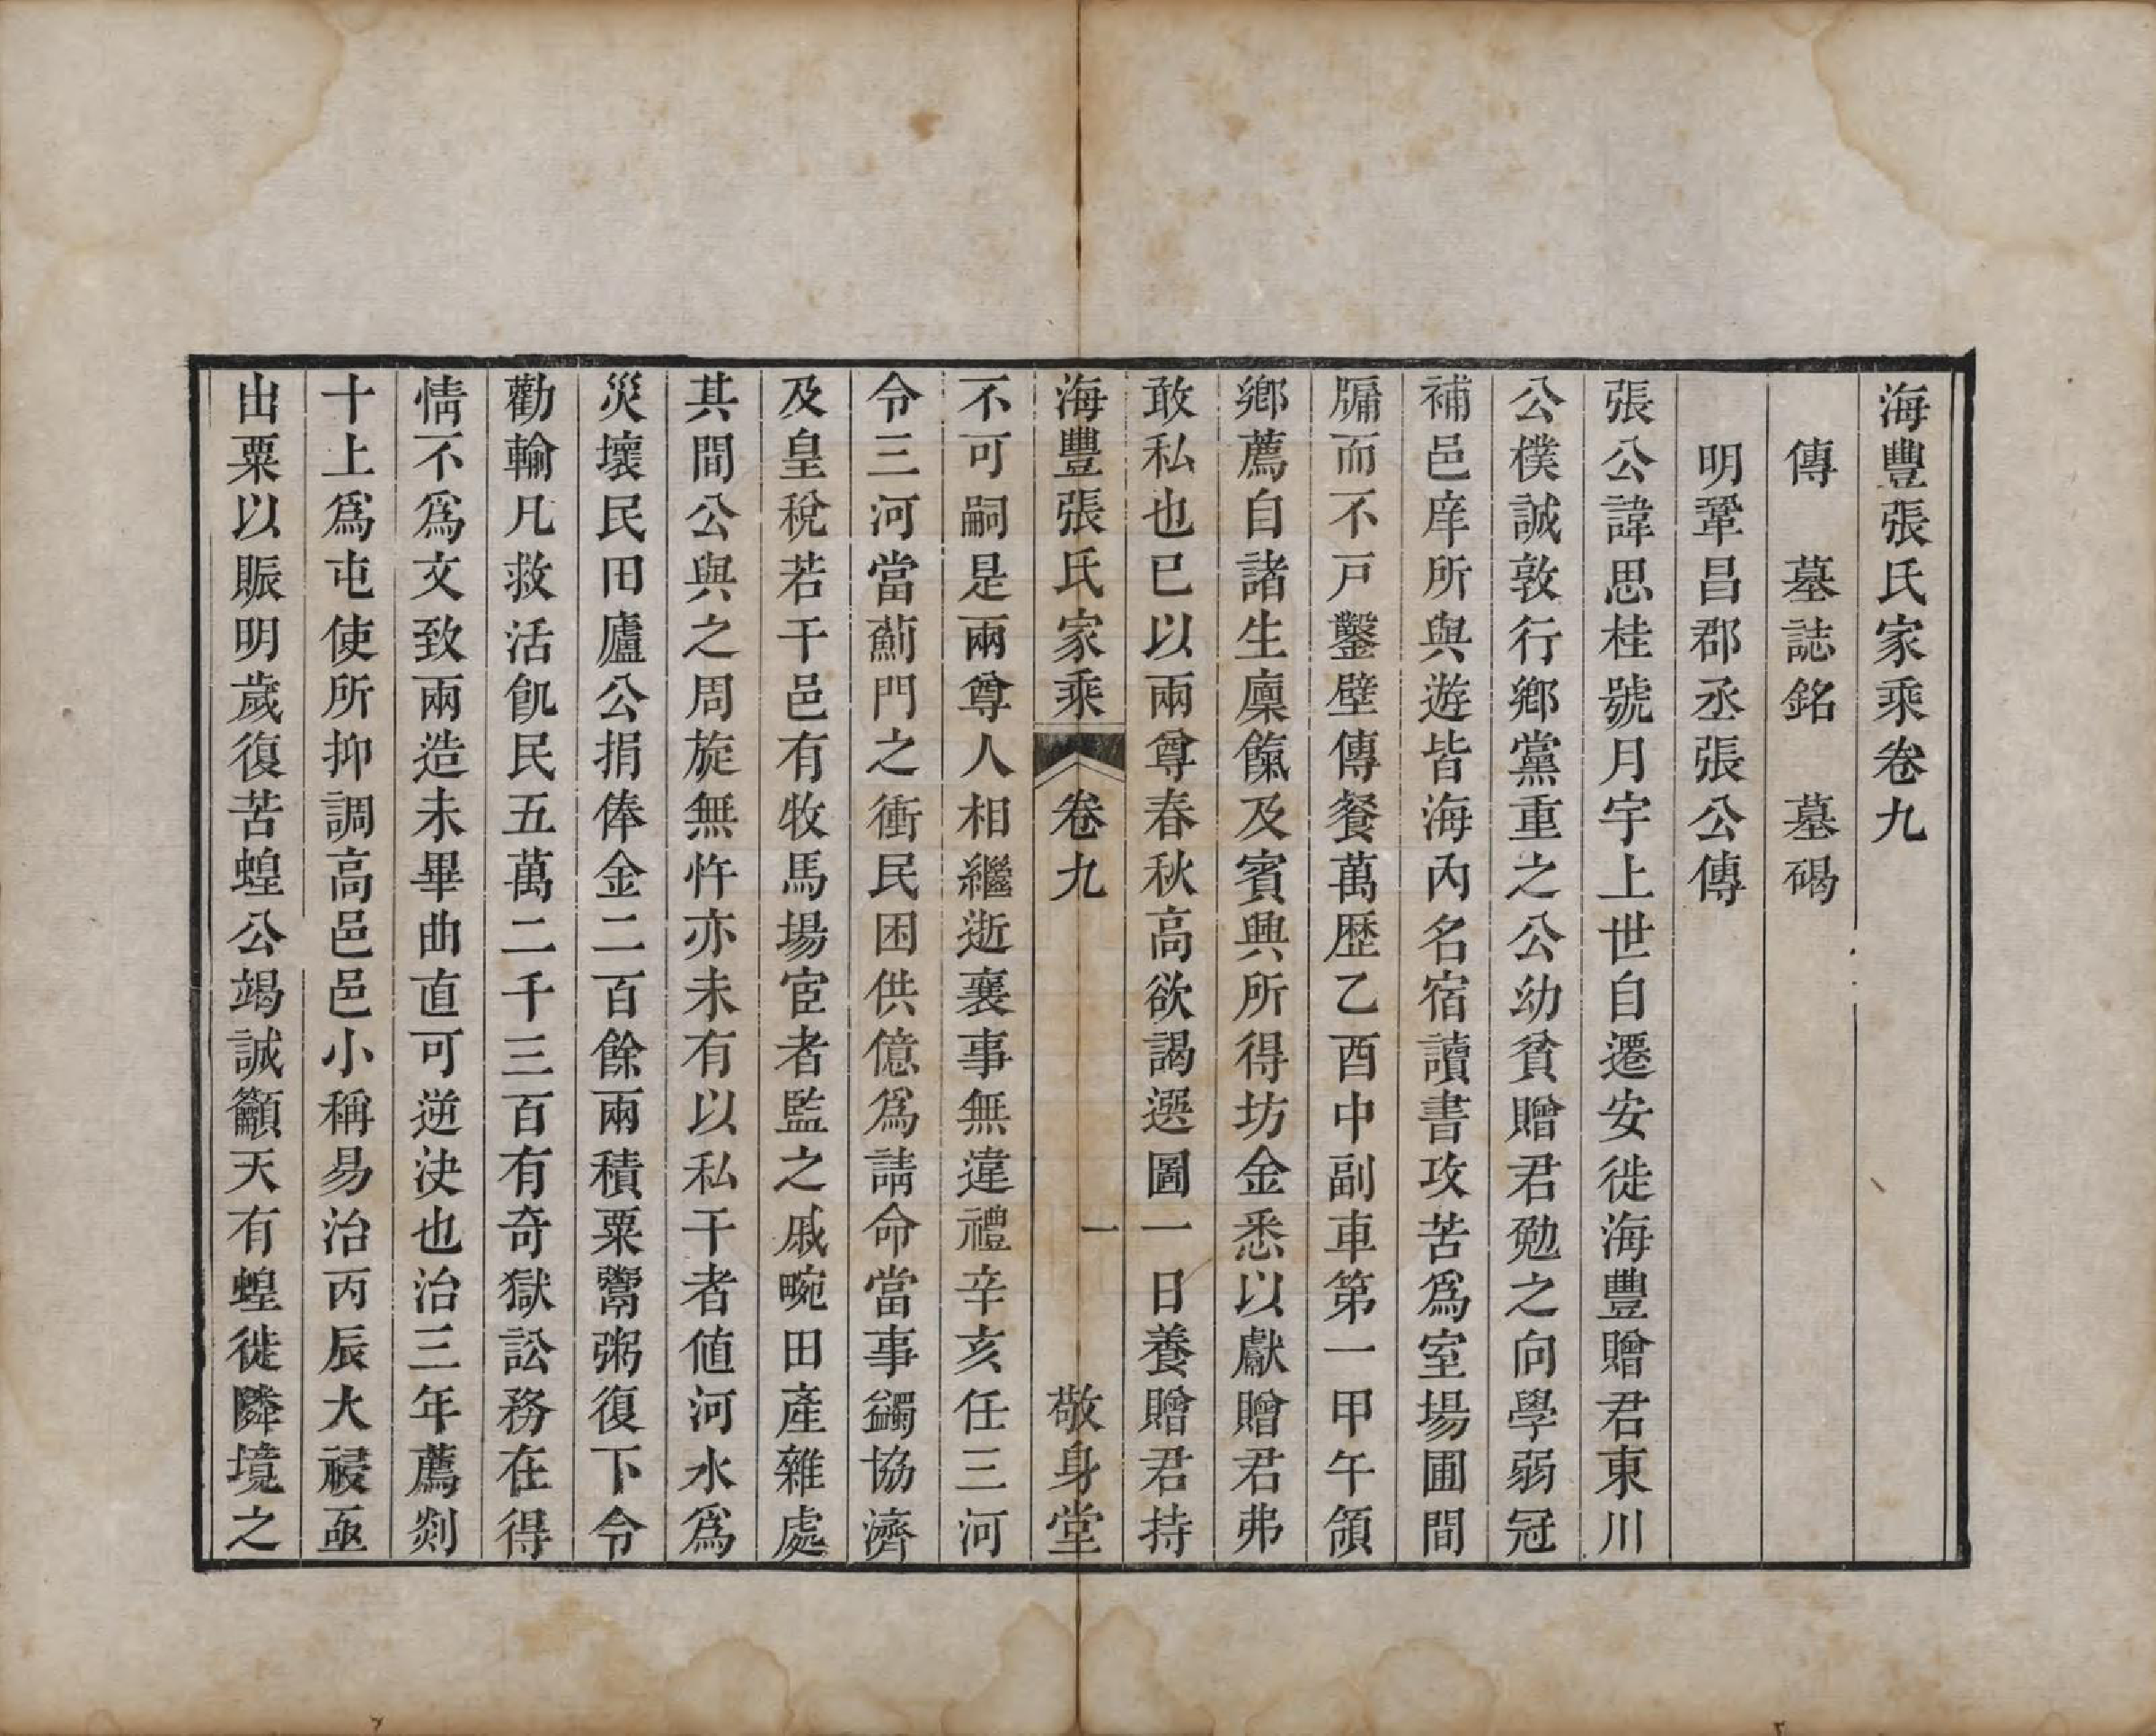 海豐張氏家乘卷九
傳　墓誌銘　墓碣
明鞏昌郡丞張公傳
張公諱思桂號月宇上世自遷安徙海豐贈君東川
公樸誠敦行鄉黨重之公幼貧贈君勉之向學弱冠
補邑庠所與遊皆海內名宿讀書攻苦爲室場圃間
牖而不戸鑿壁傳餐萬歷乙酉中副車第一甲午領
鄉薦自諸生廩餼及賓興所得坊金悉以獻贈君弗
敢私也已以兩尊春秋高欲謁選圖一日養贈君持
海豐張氏家乘　卷九　一　敬身堂
不可嗣是兩尊人相繼逝襄事無違禮辛亥任三河
令三河當薊門之衝民困供億爲請命當事蠲協濟
及皇稅若干邑有牧馬場宦者監之戚畹田產雜處
其間公與之周旋無忤亦未有以私干者値河水爲
災壞民田廬公捐俸金二百餘兩積粟鬻粥復下令
勸輸凡救活飢民五萬二千三百有奇獄訟務在得
情不爲文致兩造未畢曲直可逆决也治三年薦剡
十上爲屯使所抑調高邑邑小稱易治丙辰大祲亟
出粟以賑明歲復苦蝗公竭誠籲天有蝗徙隣境之